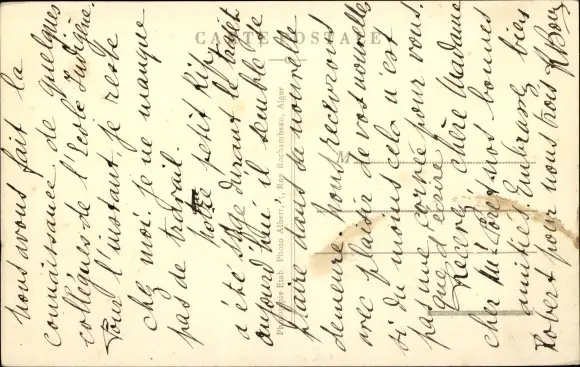 nous avons fait la
connaissance de quelques
collègues de l'Ecole Indigène.
Pour l'instant, je reste
chez moi. Je ne manque
pas de travail.
Notre petit
a été sage durant le trajet
aujourd'hui il semble se
plaire dans sa nouvelle
demeure. Nous recevrons
avec plaisir de vos nouvelles
si du moins cela n'est
pas une corvée pour vous.
que d'écrire.
Recevez chère Madame
cher nos bonnes
amitiés. Embrassez bien
Robert pour nous trois
CARTE POSTALE
M
Photo Albert, Rue Rochambeau, Alger